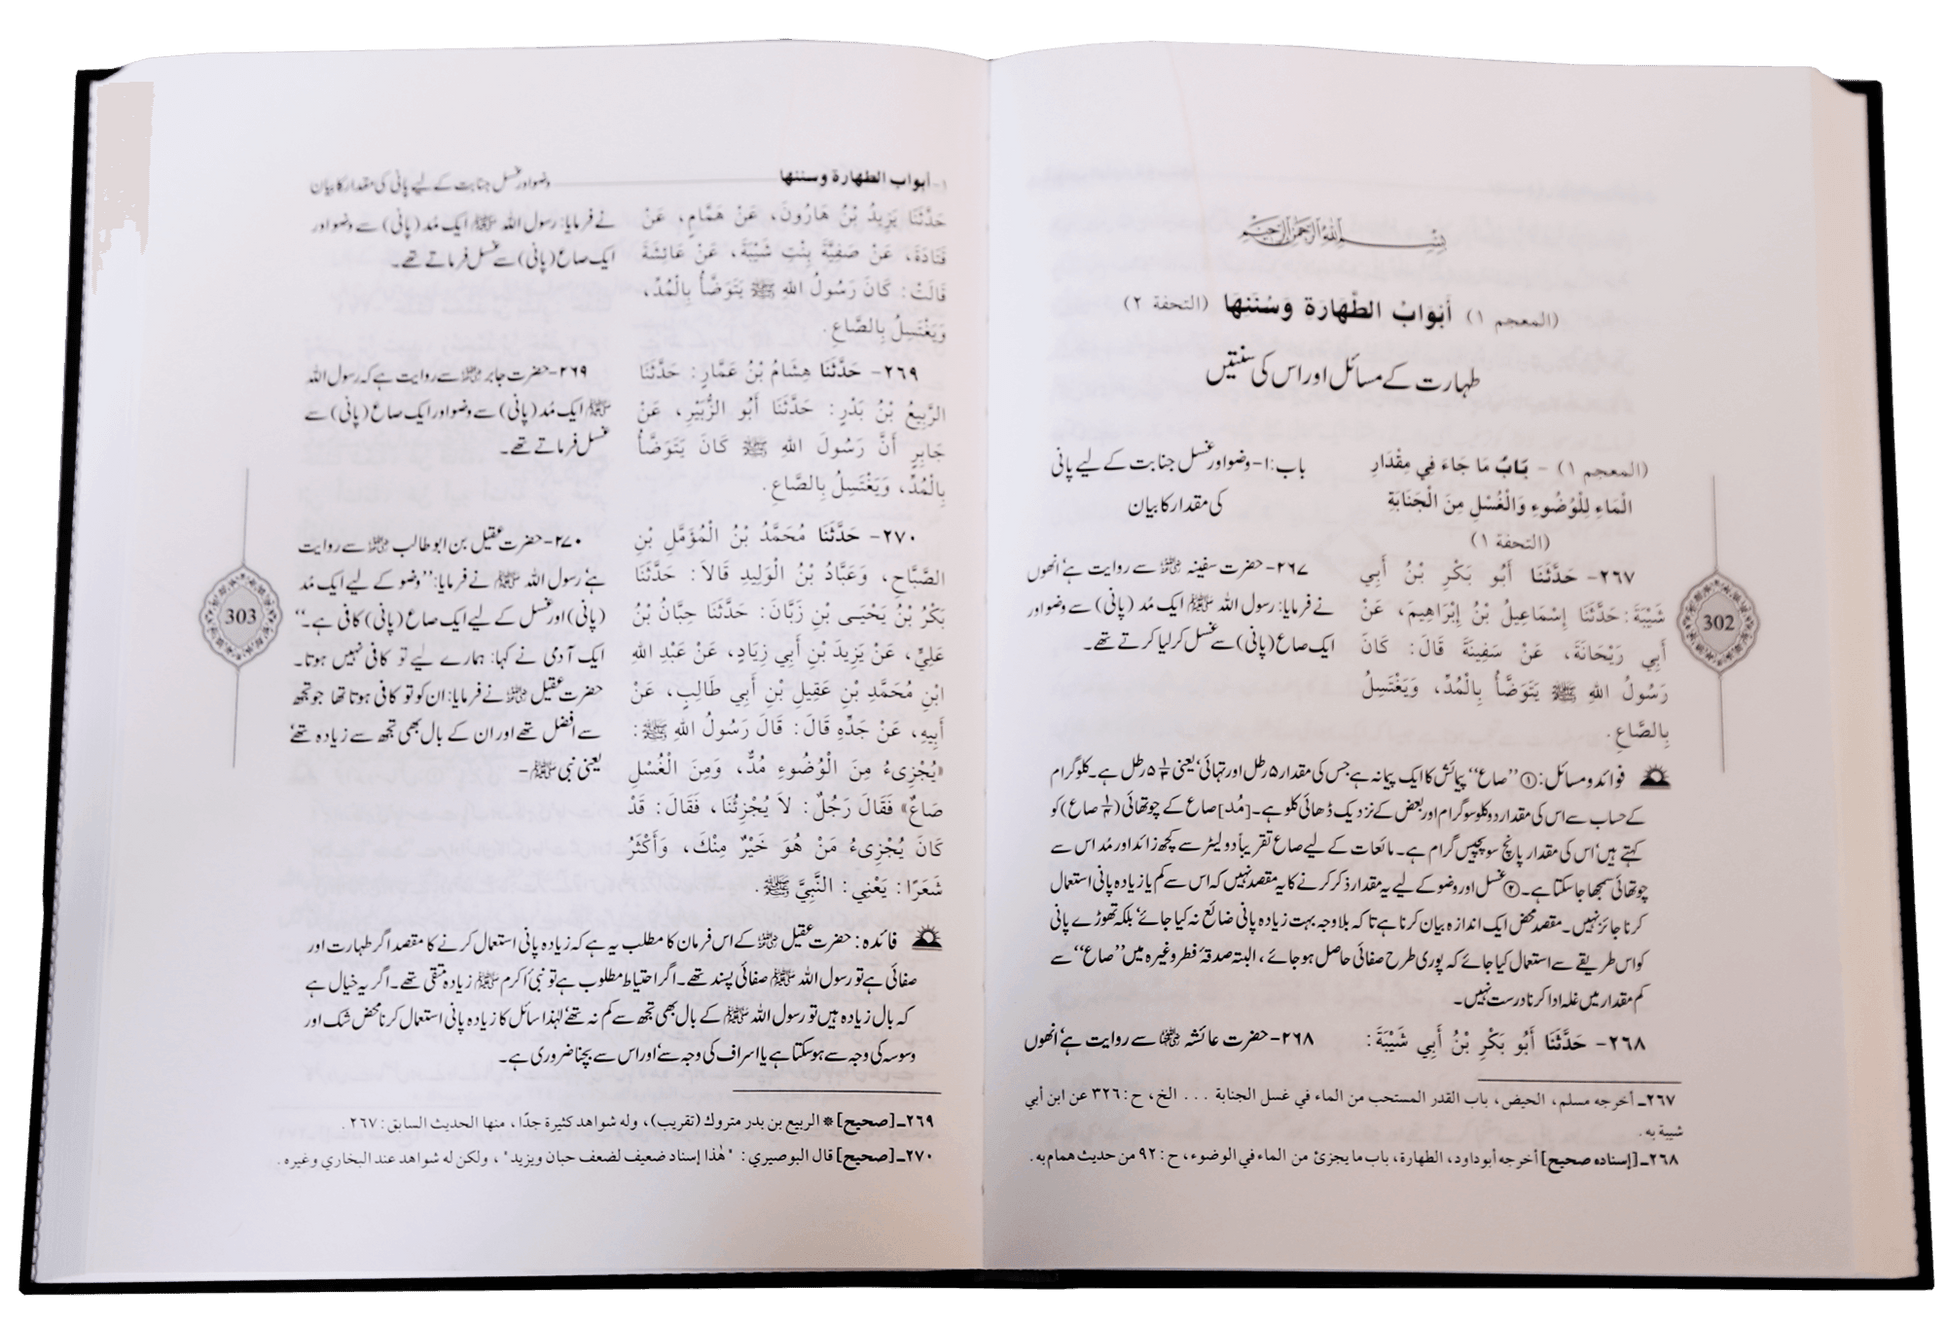 بِسْمِ اللهِ الرَّحْمٰنِ الرَّحِيْمِ
(المعجم ١) أَبْوَابُ الطَّهَارَةِ وَسُنَنِهَا (التحفة ٢)
طہارت کے مسائل اور اس کی سنتیں
(المعجم ١) - بَابُ مَا جَاءَ فِي مِقْدَارِ
الْمَاءِ لِلْوُضُوءِ وَالْغُسْلِ مِنَ الْجَنَابَةِ
(التحفة ١)
باب:۱- وضو اور غسل جنابت کے لیے پانی
کی مقدار کا بیان
٢٦٧- حَدَّثَنَا أَبُو بَكْرِ بْنُ أَبِي
شَيْبَةَ: حَدَّثَنَا إِسْمَاعِيلُ بْنُ إِبْرَاهِيمَ، عَنْ
أَبِي رَيْحَانَةَ، عَنْ سَفِينَةَ قَالَ: كَانَ
رَسُولُ اللهِ ﷺ يَتَوَضَّأُ بِالْمُدِّ، وَيَغْتَسِلُ
بِالصَّاعِ.
۲۶۷- حضرت سفینہ ؓ سے روایت ہے‘ انھوں
نے فرمایا: رسول اللہ ﷺ ایک مُد (پانی) سے وضو اور
ایک صاع (پانی) سے غسل کر لیا کرتے تھے۔
302
فوائد و مسائل: ① ’’صاع‘‘ پیمائش کا ایک پیمانہ ہے جس کی مقدار ۵ رطل اور تہائی‘ یعنی ۵ ۱/۳ رطل ہے۔ کلوگرام
کے حساب سے اس کی مقدار دو کلو سو گرام اور بعض کے نزدیک ڈھائی کلو ہے۔ [مُد] صاع کے چوتھائی (۱/۴ صاع) کو
کہتے ہیں‘ اس کی مقدار پانچ سو پچیس گرام ہے۔ مائعات کے لیے صاع تقریباً دو لیٹر سے کچھ زائد اور مُد اس سے
چوتھائی سمجھا جا سکتا ہے۔ ② غسل اور وضو کے لیے یہ مقدار ذکر کرنے کا یہ مقصد نہیں کہ اس سے کم یا زیادہ پانی استعمال
کرنا جائز نہیں۔ مقصد محض ایک اندازہ بیان کرنا ہے تاکہ بلاوجہ بہت زیادہ پانی ضائع نہ کیا جائے‘ بلکہ تھوڑے پانی
کو اس طریقے سے استعمال کیا جائے کہ پوری طرح صفائی حاصل ہو جائے، البتہ صدقۂ فطر وغیرہ میں ’’صاع‘‘ سے
کم مقدار میں غلہ ادا کرنا درست نہیں۔
٢٦٨- حَدَّثَنَا أَبُو بَكْرِ بْنُ أَبِي شَيْبَةَ:
۲۶۸- حضرت عائشہ ؓ سے روایت ہے‘ انھوں
٢٦٧ـ أخرجه مسلم، الحيض، باب القدر المستحب من الماء في غسل الجنابة . . . الخ، ح: ٣٢٦ عن ابن أبي
شيبة به.
٢٦٨ـ [إسناده صحيح] أخرجه أبوداود، الطهارة، باب ما يجزئ من الماء في الوضوء، ح: ٩٢ من حديث همام به.
١- أبواب الطهارة وسننها
وضو اور غسل جنابت کے لیے پانی کی مقدار کا بیان
حَدَّثَنَا يَزِيدُ بْنُ هَارُونَ، عَنْ هَمَّامٍ، عَنْ
قَتَادَةَ، عَنْ صَفِيَّةَ بِنْتِ شَيْبَةَ، عَنْ عَائِشَةَ
قَالَتْ: كَانَ رَسُولُ اللهِ ﷺ يَتَوَضَّأُ بِالْمُدِّ،
وَيَغْتَسِلُ بِالصَّاعِ.
نے فرمایا: رسول اللہ ﷺ ایک مُد (پانی) سے وضو اور
ایک صاع (پانی) سے غسل فرماتے تھے۔
٢٦٩- حَدَّثَنَا هِشَامُ بْنُ عَمَّارٍ: حَدَّثَنَا
الرَّبِيعُ بْنُ بَدْرٍ: حَدَّثَنَا أَبُو الزُّبَيْرِ، عَنْ
جَابِرٍ أَنَّ رَسُولَ اللهِ ﷺ كَانَ يَتَوَضَّأُ
بِالْمُدِّ، وَيَغْتَسِلُ بِالصَّاعِ.
۲۶۹- حضرت جابر ؓ سے روایت ہے کہ رسول اللہ
ﷺ ایک مُد (پانی) سے وضو اور ایک صاع (پانی) سے
غسل فرماتے تھے۔
٢٧٠- حَدَّثَنَا مُحَمَّدُ بْنُ الْمُؤَمَّلِ بْنِ
الصَّبَّاحِ، وَعَبَّادُ بْنُ الْوَلِيدِ قَالَا: حَدَّثَنَا
بَكْرُ بْنُ يَحْيَى بْنِ زَبَّانَ: حَدَّثَنَا حِبَّانُ بْنُ
عَلِيٍّ، عَنْ يَزِيدَ بْنِ أَبِي زِيَادٍ، عَنْ عَبْدِ اللهِ
ابْنِ مُحَمَّدِ بْنِ عَقِيلِ بْنِ أَبِي طَالِبٍ، عَنْ
أَبِيهِ، عَنْ جَدِّهِ قَالَ: قَالَ رَسُولُ اللهِ ﷺ:
«يُجْزِىءُ مِنَ الْوُضُوءِ مُدٌّ، وَمِنَ الْغُسْلِ
صَاعٌ» فَقَالَ رَجُلٌ: لَا يُجْزِئُنَا، فَقَالَ: قَدْ
كَانَ يُجْزِىءُ مَنْ هُوَ خَيْرٌ مِنْكَ، وَأَكْثَرُ
شَعَرًا: يَعْنِي: النَّبِيَّ ﷺ.
۲۷۰- حضرت عقیل بن ابو طالب ؓ سے روایت
ہے‘ رسول اللہ ﷺ نے فرمایا: ’’وضو کے لیے ایک مُد
(پانی) اور غسل کے لیے ایک صاع (پانی) کافی ہے۔‘‘
ایک آدمی نے کہا: ہمارے لیے تو کافی نہیں ہوتا۔
حضرت عقیل ؓ نے فرمایا: ان کو تو کافی ہوتا تھا جو تجھ
سے افضل تھے اور ان کے بال بھی تجھ سے زیادہ تھے‘
یعنی نبی ﷺ۔
303
فائدہ: حضرت عقیل ؓ کے اس فرمان کا مطلب یہ ہے کہ زیادہ پانی استعمال کرنے کا مقصد اگر طہارت اور
صفائی ہے تو رسول اللہ ﷺ صفائی پسند تھے۔ اگر احتیاط مطلوب ہے تو نبیٔ اکرم ﷺ زیادہ متقی تھے۔ اگر یہ خیال ہے
کہ بال زیادہ ہیں تو رسول اللہ ﷺ کے بال بھی تجھ سے کم نہ تھے‘ لہٰذا سائل کا زیادہ پانی استعمال کرنا محض شک اور
وسوسہ کی وجہ سے ہو سکتا ہے یا اسراف کی وجہ سے‘ اور اس سے بچنا ضروری ہے۔
٢٦٩ـ [صحيح] * الربيع بن بدر متروك (تقريب)، وله شواهد كثيرة جدًا، منها الحديث السابق: ٢٦٧.
٢٧٠ـ [صحيح] قال البوصيري: "هٰذا إسناد ضعيف لضعف حبان ويزيد"، ولكن له شواهد عند البخاري وغيره.